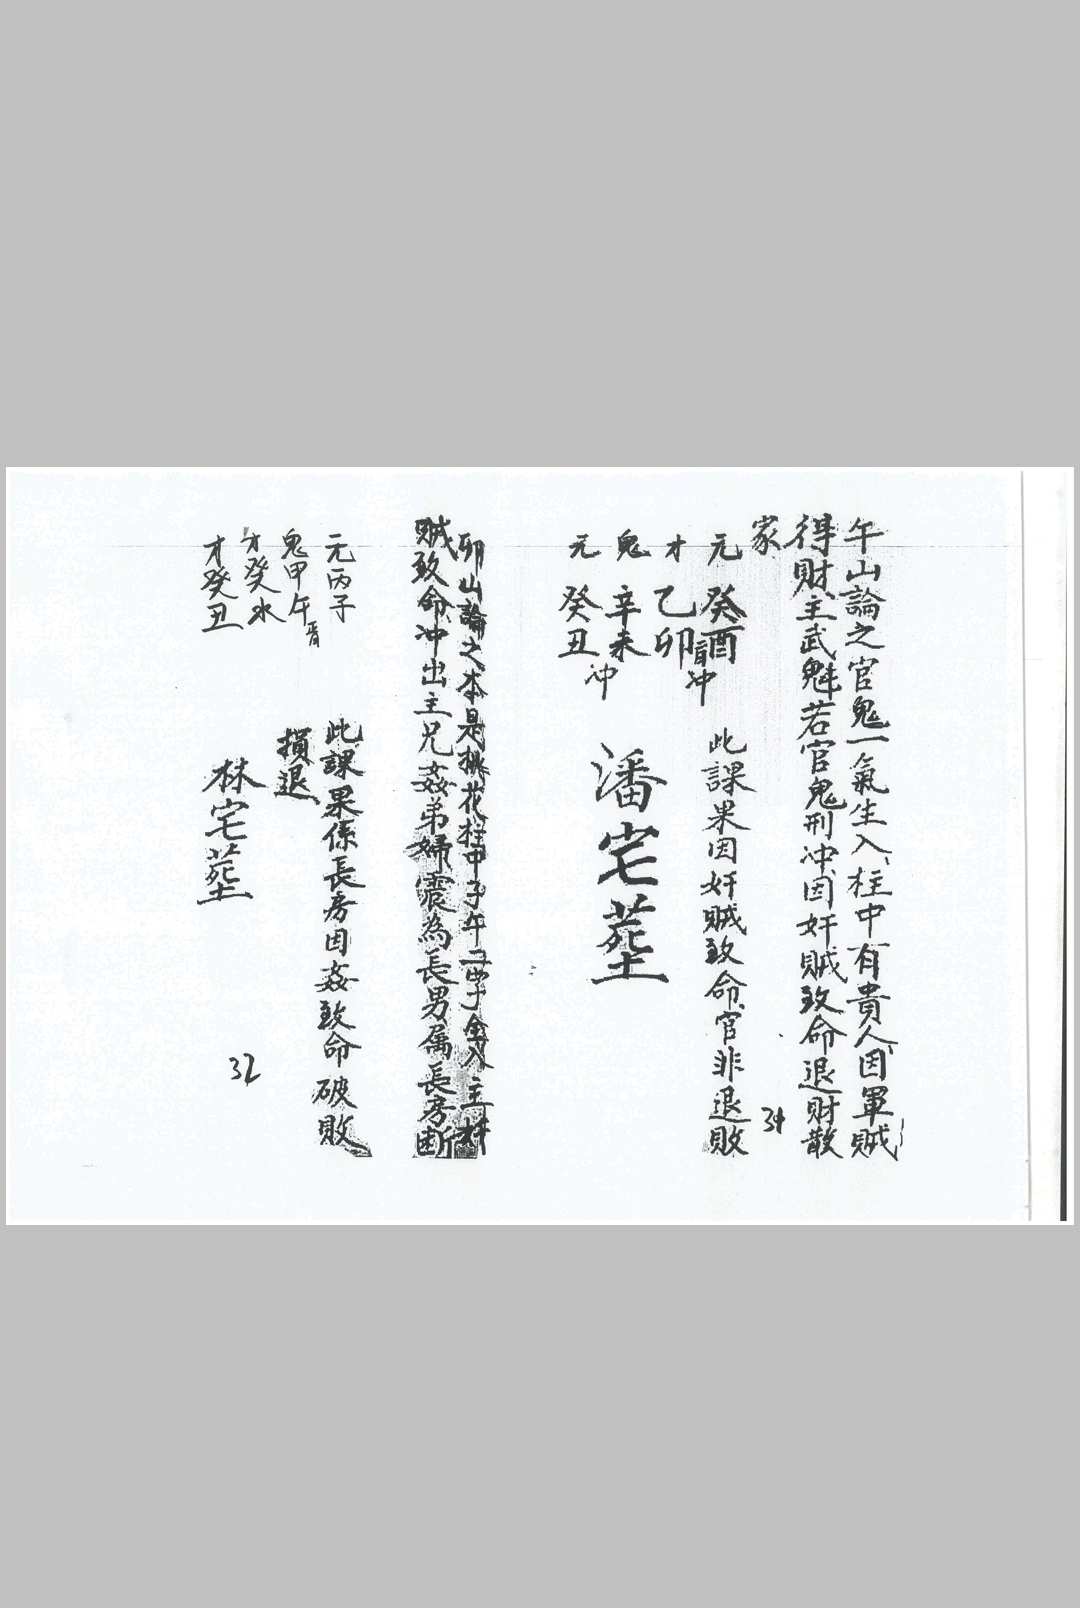 午山論之官鬼一氣生入柱中有貴人因軍賊
得財主武魁若官鬼刑冲因奸賊致命退財散
家
元 癸酉
才 乙卯 冲
鬼 辛未
元 癸丑 冲
此課果因奸賊致命官非退敗
潘宅塟
34
卯山論之本是桃花柱中子午二字金入主奸
賊致命冲出主兄姦弟婦震為長男属長房断
元丙子
鬼甲午
才癸水
才癸丑
此課果係長房因姦致命破敗
損退
林宅塟
32